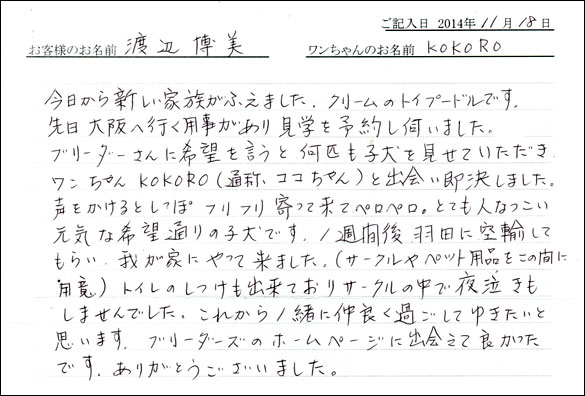 ご記入日 2014年 11月 18日
お客様のお名前 渡辺 博美 ワンちゃんのお名前 KOKORO
今日から新しい家族がふえました。クリームのトイプードルです。
先日大阪へ行く用事があり見学を予約し伺いました。
ブリーダーさんに希望を言うと何匹も子犬を見せていただき
ワンちゃん KOKORO(通称、ココちゃん)と出会い即決しました。
声をかけるとしっぽフリフリ寄って来てペロペロ。とても人なつこい
元気な希望通りの子犬です。1週間後羽田に空輸して
もらい、我が家にやって来ました。(サークルやペット用品をこの間に
用意)トイレのしつけも出来ておりサークルの中で夜泣きも
しませんでした。これから1緒に仲良く過ごしてゆきたいと
思います。ブリーダーズのホームページに出会えて良かった
です。ありがとうございました。